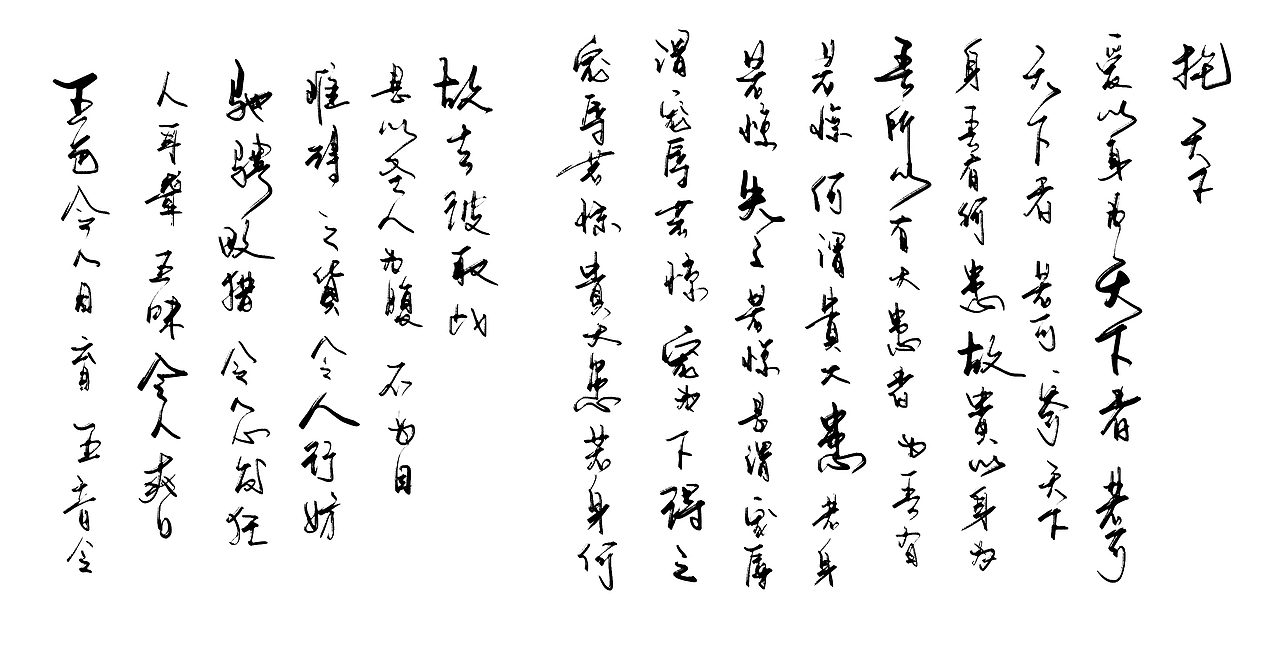 五色令人目盲五音令
人耳聾五味令人爽口
馳騁畋猎令人心发狂
難得之貨令人行妨
是以圣人为腹不为目
故去彼取此
宠辱若惊貴大患若身何
謂宠辱若惊宠为下得之
若惊失之若惊是謂宠辱
若惊何謂貴大患若身
吾所以有大患者为吾有
身吾有何患故貴以身为
天下者若可寄天下
爱以身为天下者若可
托天下